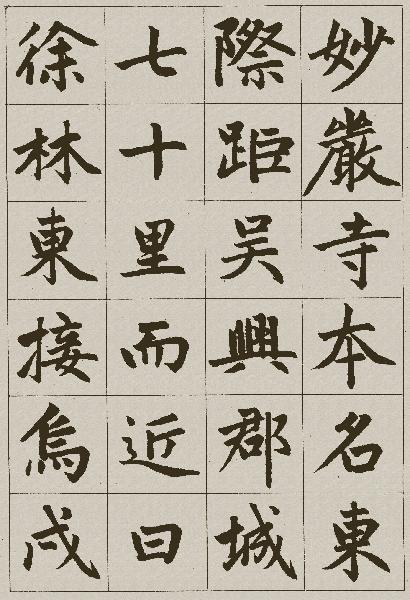 妙嚴寺本名東
際距吴興郡城
七十里而近曰
徐林東接烏戍